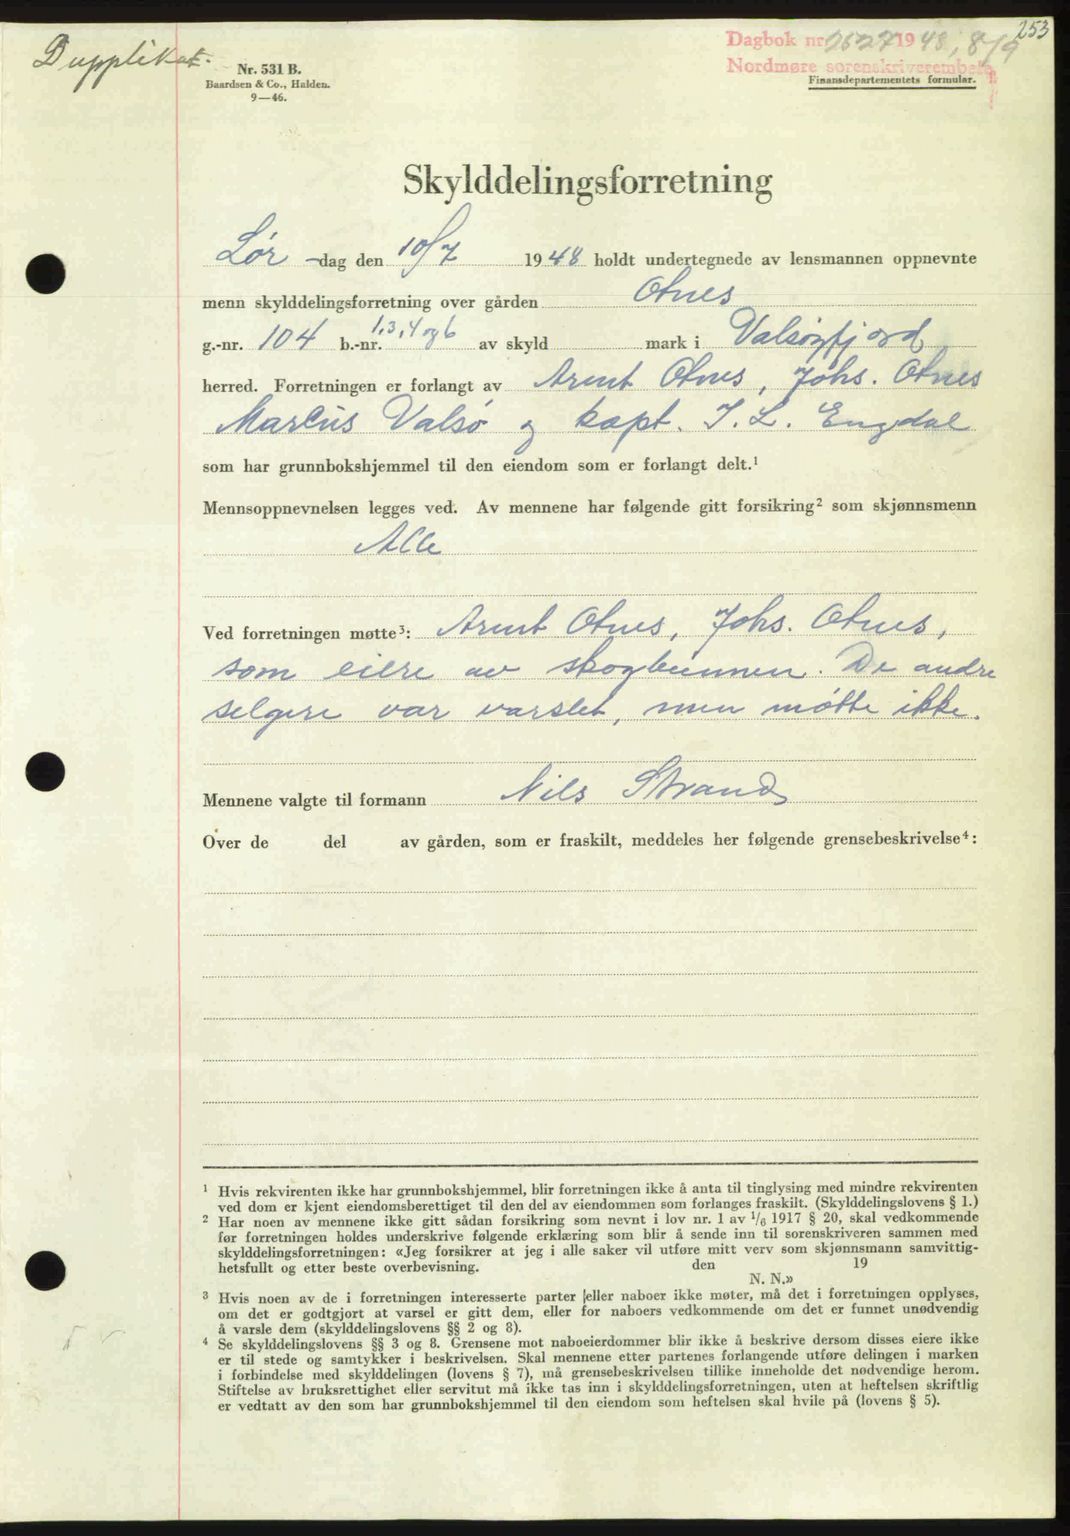 253
Dupplikat.
Dagbok nr. 2527 1948, 8/9
Nordmøre sorenskriverembete
Nr. 531 B.
Baardsen & Co., Halden.
9—46.
Finansdepartementets formular.
Skylddelingsforretning
Lør -dag den 10/7 1948 holdt undertegnede av lensmannen oppnevnte
menn skylddelingsforretning over gården Otnes
g.-nr. 104 b.-nr. 1, 3, 4 og 6 av skyld mark i Valsøyfjord
herred. Forretningen er forlangt av Arnt Otnes, Johs. Otnes
Marcus Valsø og kapt. J. L. Engdal
som har grunnbokshjemmel til den eiendom som er forlangt delt.¹
Mennsoppnevnelsen legges ved. Av mennene har følgende gitt forsikring² som skjønnsmenn
Alle
Ved forretningen møtte³: Arnt Otnes, Johs. Otnes,
som eiere av skogbunnen. De andre
selgere var varslet, men møtte ikke.
Mennene valgte til formann Nils Strand
Over de del av gården, som er fraskilt, meddeles her følgende grensebeskrivelse⁴:
¹ Hvis rekvirenten ikke har grunnbokshjemmel, blir forretningen ikke å anta til tinglysing med mindre rekvirenten
ved dom er kjent eiendomsberettiget til den del av eiendommen som forlanges fraskilt. (Skylddelingslovens § 1.)
² Har noen av mennene ikke gitt sådan forsikring som nevnt i lov nr. 1 av 1/6 1917 § 20, skal vedkommende
før forretningen holdes underskrive følgende erklæring som blir å sende inn til sorenskriveren sammen med
skylddelingsforretningen: «Jeg forsikrer at jeg i alle saker vil utføre mitt verv som skjønnsmann samvittig-
hetsfullt og etter beste overbevisning. den 19
N. N.»
³ Hvis noen av de i forretningen interesserte parter eller naboer ikke møter, må det i forretningen opplyses,
om det er godtgjort at varsel er gitt dem, eller for naboers vedkommende om det er funnet unødvendig
å varsle dem (skylddelingslovens §§ 2 og 8).
⁴ Se skylddelingslovens §§ 3 og 8. Grensene mot naboeierdommer blir ikke å beskrive dersom disses eiere ikke
er til stede og samtykker i beskrivelsen. Skal mennene etter partenes forlangende utføre delingen i marken
i forbindelse med skylddelingen (lovens § 7), må grensebeskrivelsen tillike inneholde det nødvendige herom.
Stiftelse av bruksrettighet eller servitut må ikke tas inn i skylddelingsforretningen, uten at heftelsen skriftlig
er vedtatt av den som har grunnbokshjemmel til den eiendom som heftelsen skal hvile på (lovens § 5).